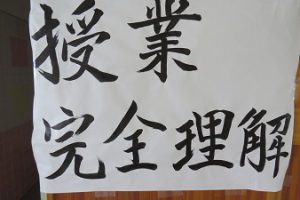 授業
完全理解